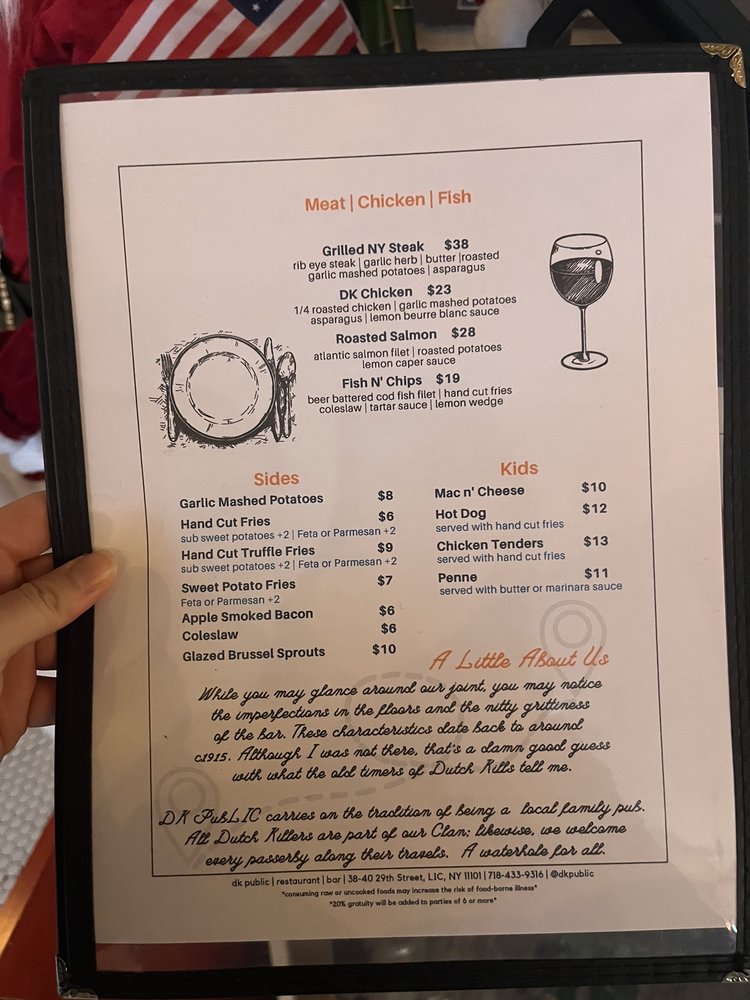 Meat | Chicken | Fish
Grilled NY Steak $38
rib eye steak | garlic herb | butter |roasted
garlic mashed potatoes | asparagus
DK Chicken $23
1/4 roasted chicken | garlic mashed potatoes
asparagus | lemon beurre blanc sauce
Roasted Salmon $28
atlantic salmon filet | roasted potatoes
lemon caper sauce
Fish N' Chips $19
beer battered cod fish filet | hand cut fries
coleslaw | tartar sauce | lemon wedge
Sides
Garlic Mashed Potatoes $8
Hand Cut Fries $6
sub sweet potatoes +2 | Feta or Parmesan +2
Hand Cut Truffle Fries $9
sub sweet potatoes +2 | Feta or Parmesan +2
Sweet Potato Fries $7
Feta or Parmesan +2
Apple Smoked Bacon $6
Coleslaw $6
Glazed Brussel Sprouts $10
Kids
Mac n' Cheese $10
Hot Dog $12
served with hand cut fries
Chicken Tenders $13
served with hand cut fries
Penne $11
served with butter or marinara sauce
A Little About Us
While you may glance around our joint, you may notice
the imperfections in the floors and the nitty grittiness
of the bar. These characteristics date back to around
c1915. Although I was not there, that's a damn good guess
with what the old timers of Dutch Kills tell me.
DK PubLIC carries on the tradition of being a local family pub.
All Dutch Killers are part of our Clan; likewise, we welcome
every passerby along their travels. A waterhole for all.
dk public | restaurant | bar | 38-40 29th Street, LIC, NY 11101 | 718-433-9316 | @dkpublic
*consuming raw or uncooked foods may increase the risk of food-borne illness*
*20% gratuity will be added to parties of 6 or more*